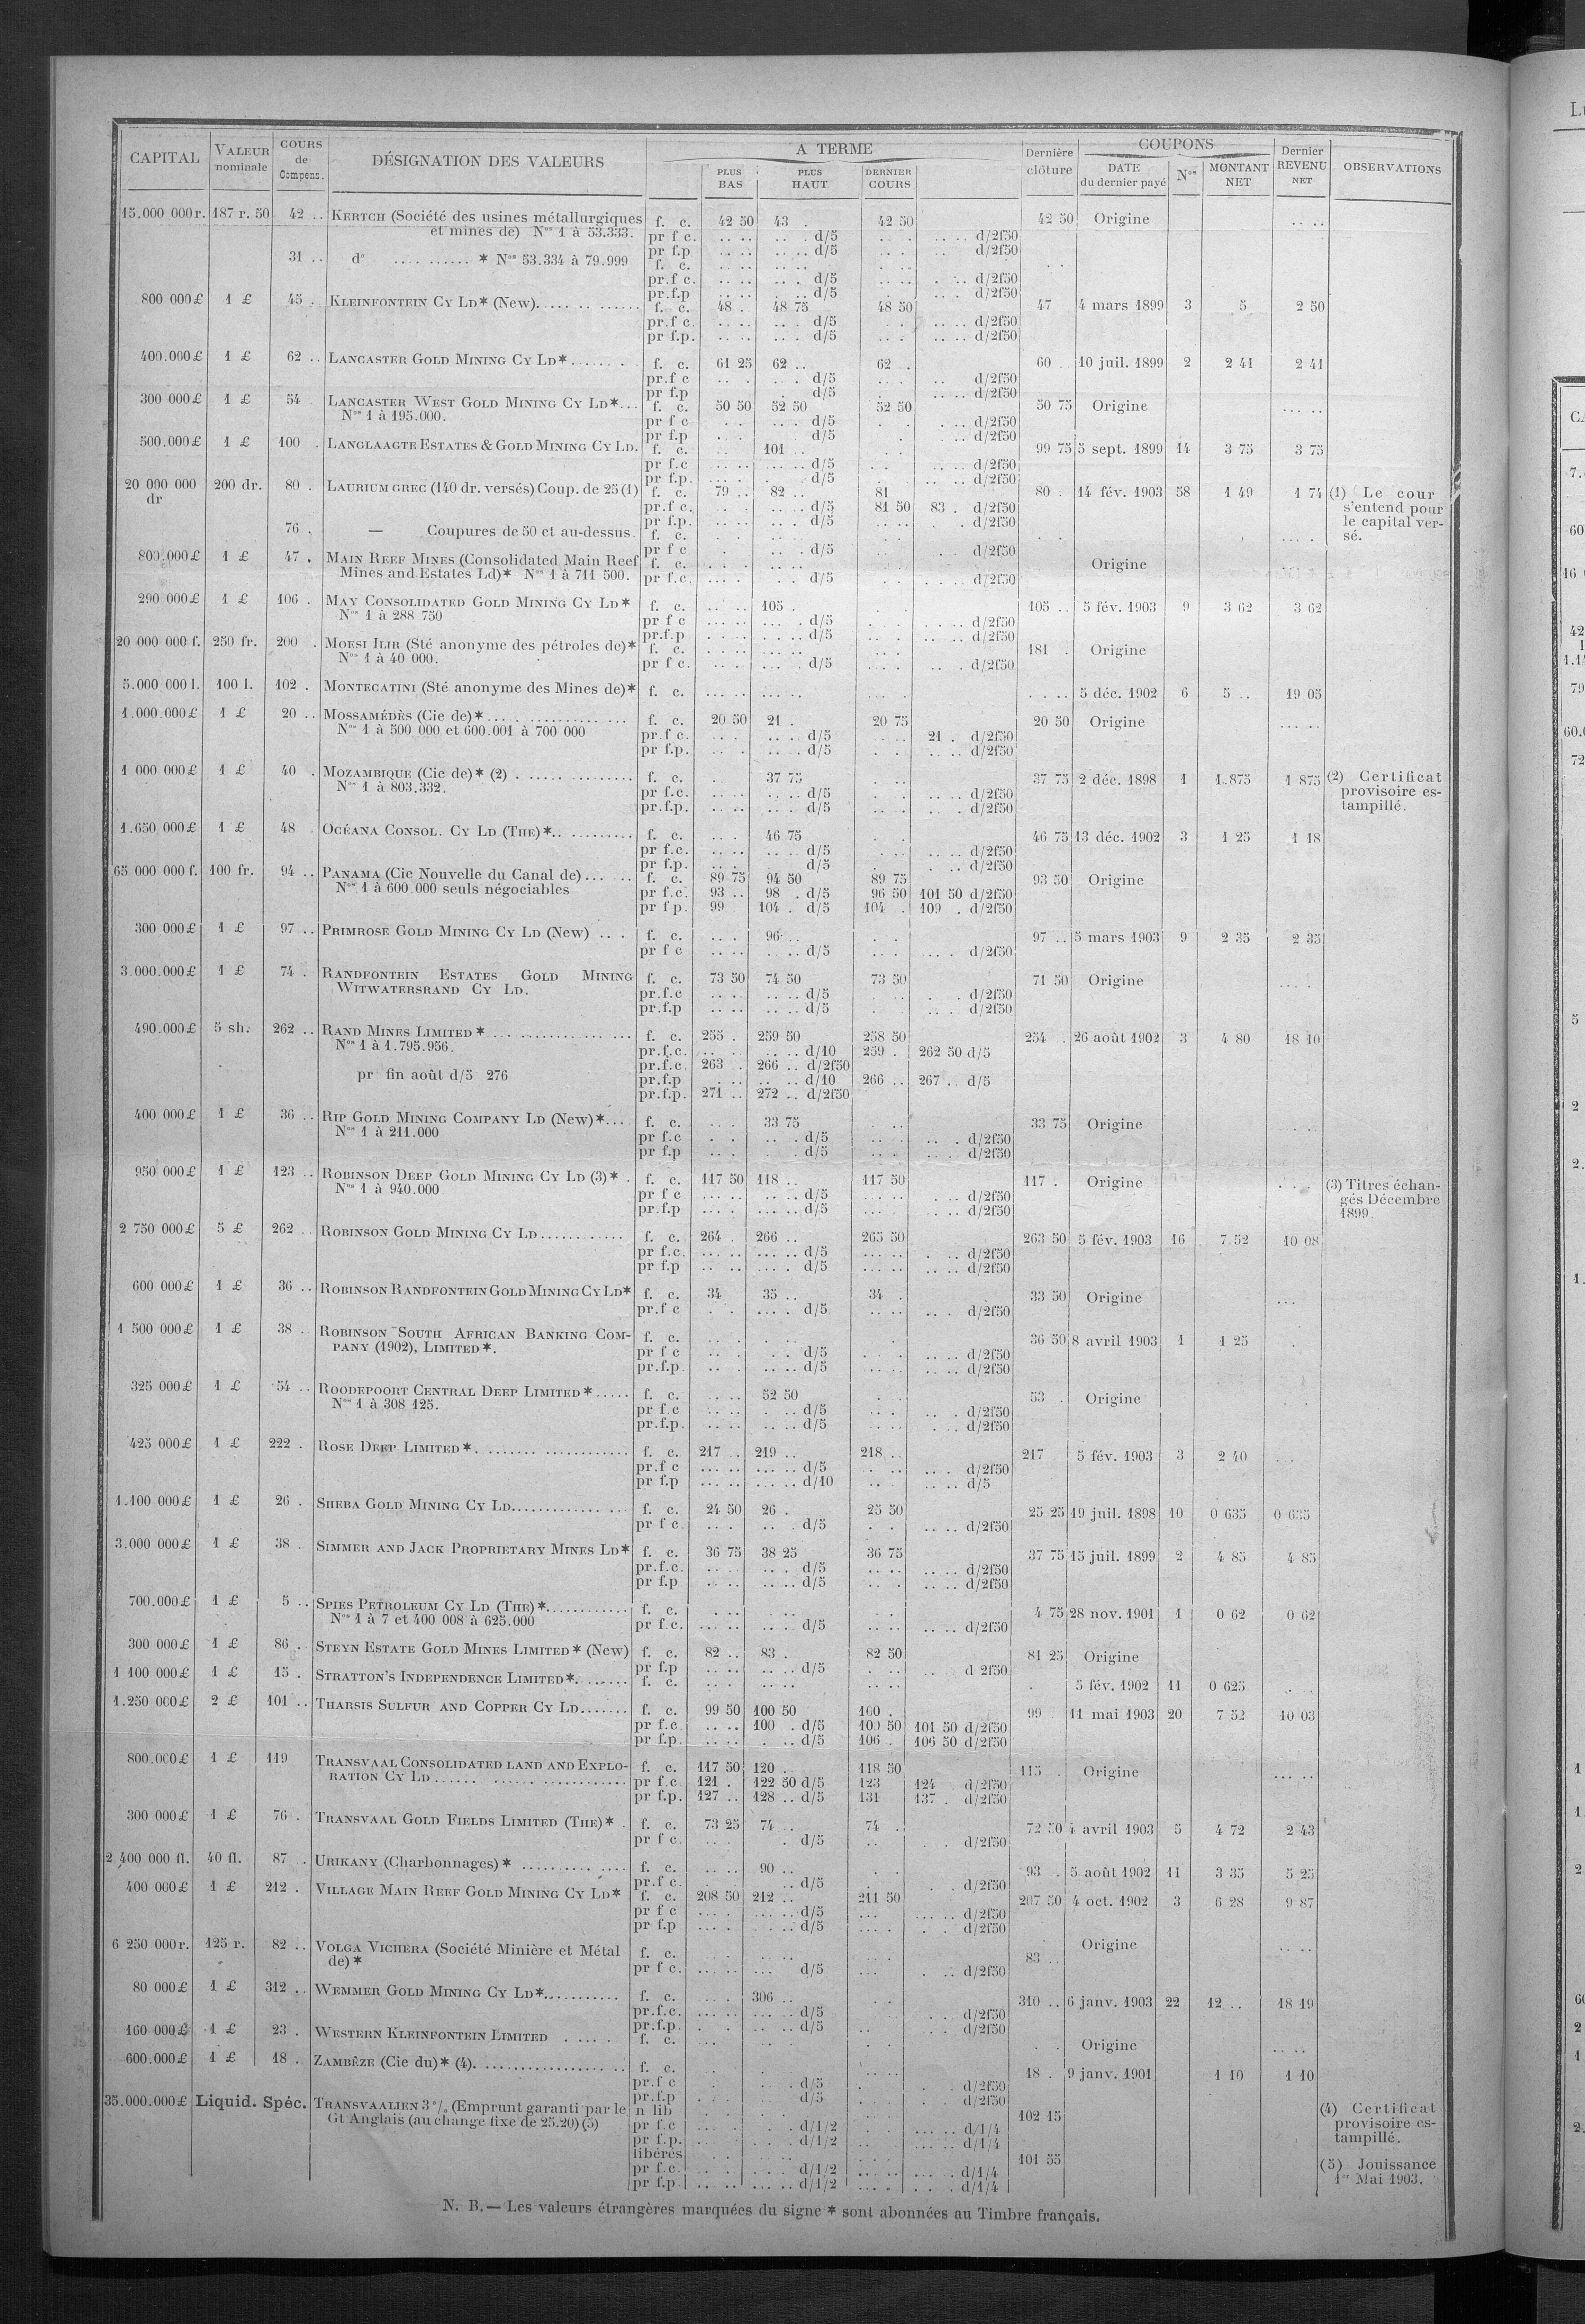 CAPITAL VALEUR nominale COURS de Compens. DÉSIGNATION DES VALEURS A TERME PLUS BAS PLUS HAUT DERNIER COURS Dernière clôture COUPONS DATE du dernier payé Nos MONTANT NET Dernier REVENU NET OBSERVATIONS
15.000 000r. 187 r. 50 42 .. KERTCH (Société des usines métallurgiques f. c. 42 50 43 . 42 50 42 50 Origine
et mines de) Nos 1 à 53.333. pr f c. d/5 d/2f50
pr f.p d/5 d/2f50
31 .. do .......... * Nos 53.334 à 79.999 f. c.
pr.f c. d/5 d/2f50
pr.f.p d/5 d/2f50
800 000£ 1 £ 45 . KLEINFONTEIN CY LD* (New) f. c. 48 . 48 75 48 50 47 4 mars 1899 3 5 2 50
pr.f c. d/5 d/2f50
pr f.p. d/5 d/2f50
400.000£ 1 £ 62 .. LANCASTER GOLD MINING CY LD* f. c. 61 25 62 .. 62 . 60 .. 10 juil. 1899 2 2 41 2 41
pr.f c d/5 d/2f50
pr f.p d/5 d/2f50
300 000£ 1 £ 54 LANCASTER WEST GOLD MINING CY LD*... f. c. 50 50 52 50 52 50 50 75 Origine
Nos 1 à 195.000. pr f c d/5 d/2f50
pr f.p d/5 d/2f50
500.000£ 1 £ 100 . LANGLAAGTE ESTATES & GOLD MINING CY LD. f. c. 101 .. 99 75 5 sept. 1899 14 3 75 3 75
pr f.c d/5 d/2f50
pr f.p. d/5 d/2f50
20 000 000 dr 200 dr. 80 . LAURIUM GREC (140 dr. versés) Coup. de 25 (1) f. c. 79 .. 82 .. 81 80 . 14 fév. 1903 58 1 49 1 74 (1) Le cour
pr.f c. d/5 81 50 83 . d/2f50 s'entend pour
pr f.p. d/5 d/2f50 le capital ver-
76 . — Coupures de 50 et au-dessus. f. c. sé.
pr f c d/5 d/2f50
800.000£ 1 £ 47 . MAIN REEF MINES (Consolidated Main Reef f. c. Origine
Mines and Estates Ld)* Nos 1 à 711 500. pr f.c. d/5 d/2f50
290 000£ 1 £ 106 . MAY CONSOLIDATED GOLD MINING CY LD* f. c. 105 . 105 .. 5 fév. 1903 9 3 62 3 62
Nos 1 à 288 750 pr f c d/5 d/2f50
pr.f.p d/5 d/2f50
20 000 000 f. 250 fr. 200 . MOESI ILIR (Sté anonyme des pétroles de)* f. c. 181 . Origine
Nos 1 à 40 000. pr f c. d/5 d/2f50
5.000 000 l. 100 l. 102 . MONTECATINI (Sté anonyme des Mines de)* f. c. 5 déc. 1902 6 5 .. 19 05
1.000.000£ 1 £ 20 .. MOSSAMÉDÈS (Cie de)* f. c. 20 50 21 . 20 75 20 50 Origine
Nos 1 à 500 000 et 600.001 à 700 000 pr.f c. d/5 21 . d/2f50
pr f.p. d/5 d/2f50
1 000 000£ 1 £ 40 . MOZAMBIQUE (Cie de)* (2) f. c. 37 75 37 75 2 déc. 1898 1 1.875 1 875 (2) Certificat
Nos 1 à 803.332. pr f.c. d/5 d/2f50 provisoire es-
pr.f.p. d/5 d/2f50 tampillé.
1.650 000£ 1 £ 48 . OCÉANA CONSOL. CY LD (THE)* f. c. 46 75 46 75 13 déc. 1902 3 1 25 1 18
pr f.c. d/5 d/2f50
pr f.p. d/5 d/2f50
65 000 000 f. 100 fr. 94 .. PANAMA (Cie Nouvelle du Canal de) f. c. 89 75 94 50 89 75 93 50 Origine
Nos 1 à 600.000 seuls négociables pr f.c. 93 .. 98 . d/5 96 50 101 50 d/2f50
pr f p. 99 104 . d/5 104 . 109 . d/2f50
300 000£ 1 £ 97 .. PRIMROSE GOLD MINING CY LD (New) f. c. 96 .. 97 .. 5 mars 1903 9 2 35 2 35
pr f c d/5 d/2f50
3.000.000£ 1 £ 74 . RANDFONTEIN ESTATES GOLD MINING f. c. 73 50 74 50 73 50 71 50 Origine
WITWATERSRAND CY LD. pr.f.c d/5 d/2f50
pr.f.p d/5 d/2f50
490.000£ 5 sh. 262 .. RAND MINES LIMITED * f. c. 255 . 259 50 258 50 254 . 26 août 1902 3 4 80 18 10
Nos 1 à 1.795.956. pr.f.c. d/10 259 . 262 50 d/5
pr.f.c. 263 . 266 .. d/2f50
pr fin août d/5 276 pr.f.p d/10 266 .. 267 .. d/5
pr.f.p. 271 .. 272 .. d/2f50
400 000£ 1 £ 36 .. RIP GOLD MINING COMPANY LD (New)*... f. c. 33 75 33 75 Origine
Nos 1 à 211.000 pr f.c d/5 d/2f50
pr f.p d/5 d/2f50
950 000£ 1 £ 123 .. ROBINSON DEEP GOLD MINING CY LD (3)* . f. c. 117 50 118 .. 117 50 117 . Origine (3) Titres échan-
Nos 1 à 940.000 pr f c d/5 d/2f50 gés Décembre
pr.f.p d/5 d/2f50 1899.
2 750 000£ 5 £ 262 .. ROBINSON GOLD MINING CY LD f. c. 264 . 266 .. 265 50 263 50 5 fév. 1903 16 7.52 10 08
pr f.c. d/5 d/2f50
pr f.p d/5 d/2f50
600 000£ 1 £ 36 .. ROBINSON RANDFONTEIN GOLD MINING CY LD* f. c. 34 35 .. 34 . 33 50 Origine
pr.f c d/5 d/2f50
1 500 000£ 1 £ 38 . ROBINSON SOUTH AFRICAN BANKING COM- f. c. 36 50 8 avril 1903 1 1 25
PANY (1902), LIMITED*. pr f c d/5 d/2f50
pr.f.p. d/5 d/2f50
325 000£ 1 £ 54 .. ROODEPOORT CENTRAL DEEP LIMITED * f. c. 52 50 53 . Origine
Nos 1 à 308 125. pr f.c d/5 d/2f50
pr.f.p. d/5 d/2f50
425 000£ 1 £ 222 . ROSE DEEP LIMITED * f. c. 217 . 219 .. 218 .. 217 5 fév. 1903 3 2 40
pr.f c d/5 d/2f50
pr f.p d/10 d/5
1.100 000£ 1 £ 26 . SHEBA GOLD MINING CY LD f. c. 24 50 26 . 25 50 25 25 19 juil. 1898 10 0 635 0 635
pr f c. d/5 d/2f50
3.000 000£ 1 £ 38 . SIMMER AND JACK PROPRIETARY MINES LD* f. c. 36 75 38 25 36 75 37 75 15 juil. 1899 2 4 85 4 85
pr.f.c. d/5 d/2f50
pr f.p d/5 d/2f50
700.000£ 1 £ 5 .. SPIES PETROLEUM CY LD (THE)* f. c. 4 75 28 nov. 1901 1 0 62 0 62
Nos 1 à 7 et 400 008 à 625.000 pr f.c. d/5 d/2f50
300 000£ 1 £ 86 . STEYN ESTATE GOLD MINES LIMITED * (New) f. c. 82 .. 83 . 82 50 81 25 Origine
pr f.p d/5 d 2f50
1 100 000£ 1 £ 15 . STRATTON'S INDEPENDENCE LIMITED* f. c. 5 fév. 1902 11 0 625
1.250 000£ 2 £ 101 .. THARSIS SULFUR AND COPPER CY LD f. c. 99 50 100 50 100 . 99 . 11 mai 1903 20 7 52 10 03
pr f.c d/5 100 . 100 50 101 50 d/2f50
pr f.p. d/5 106 . 106 50 d/2f50
800.000£ 1 £ 119 TRANSVAAL CONSOLIDATED LAND AND EXPLO- f. c. 117 50 120 .. 118 50 115 . Origine
RATION CY LD pr f.c 121 . 122 50 d/5 123 124 . d/2f50
pr f.p. 127 .. 128 .. d/5 131 137 . d/2f50
300 000£ 1 £ 76 . TRANSVAAL GOLD FIELDS LIMITED (THE)* . f. c. 73 25 74 .. 74 . 72 50 4 avril 1903 5 4 72 2 43
pr f c. d/5 d/2f50
2 400 000 fl. 40 fl. 87 .. URIKANY (Charbonnages) * f. c. 90 .. 93 . 5 août 1902 11 3 35 5 25
pr.f c. d/5 d/2f50
400 000£ 1 £ 212 . VILLAGE MAIN REEF GOLD MINING CY LD* f. c. 208 50 212 .. 211 50 207 50 4 oct. 1902 3 6 28 9 87
pr f c d/5 d/2f50
pr f.p d/5 d/2f50
6 250 000r. 125 r. 82 .. VOLGA VICHERA (Société Minière et Métal f. c. 83 .. Origine
de)* pr f c. d/5 d/2f50
80 000£ 1 £ 312 .. WEMMER GOLD MINING CY LD* f. c. 306 .. 310 .. 6 janv. 1903 22 12 .. 18 19
pr.f.c. d/5 d/2f50
pr.f.p. d/5 d/2f50
160 000£ 1 £ 23 . WESTERN KLEINFONTEIN LIMITED f. c. Origine
600.000£ 1 £ 18 . ZAMBÈZE (Cie du)* (4) f. c. 18 . 9 janv. 1901 1 10 1 10
pr.f c d/5 d/2f50
pr.f.p d/5 d/2f50
35.000.000£ Liquid. Spéc. TRANSVAALIEN 3 % (Emprunt garanti par le n lib 102 15 (4) Certificat
Gt Anglais (au change fixe de 25.20) (5) pr f.c d/1/2 d/1/4 provisoire es-
pr f.p. d/1/2 d/1/4 tampillé.
libérés 101 55
pr f.c. d/1/2 d/1/4 (5) Jouissance
pr f.p. d/1/2 d/1/4 1er Mai 1903.
N. B.— Les valeurs étrangères marquées du signe * sont abonnées au Timbre français.